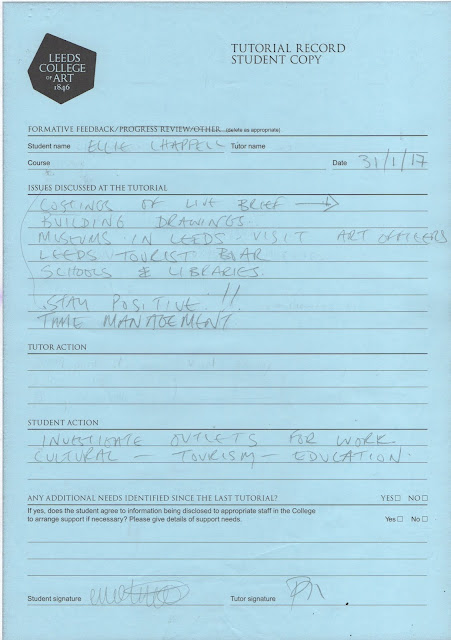 LEEDS
COLLEGE
OF ART
1846
TUTORIAL RECORD
STUDENT COPY
FORMATIVE FEEDBACK/PROGRESS REVIEW/OTHER (delete as appropriate)
Student name ELLIE CHAPPELL Tutor name
Course Date 31/1/17
ISSUES DISCUSSED AT THE TUTORIAL
COSTINGS OF LIVE BRIEF →
BUILDING DRAWINGS
MUSEUMS IN LEEDS - VISIT ART OFFICERS
LEEDS TOURIST
SCHOOLS & LIBRARIES.
STAY POSITIVE !!
TIME MANAGEMENT
TUTOR ACTION
STUDENT ACTION
INVESTIGATE OUTLETS FOR WORK
CULTURAL - TOURISM - EDUCATION.
ANY ADDITIONAL NEEDS IDENTIFIED SINCE THE LAST TUTORIAL? YES☐ NO☐
If yes, does the student agree to information being disclosed to appropriate staff in the College
to arrange support if necessary? Please give details of support needs. Yes☐ No☐
Student signature Tutor signature